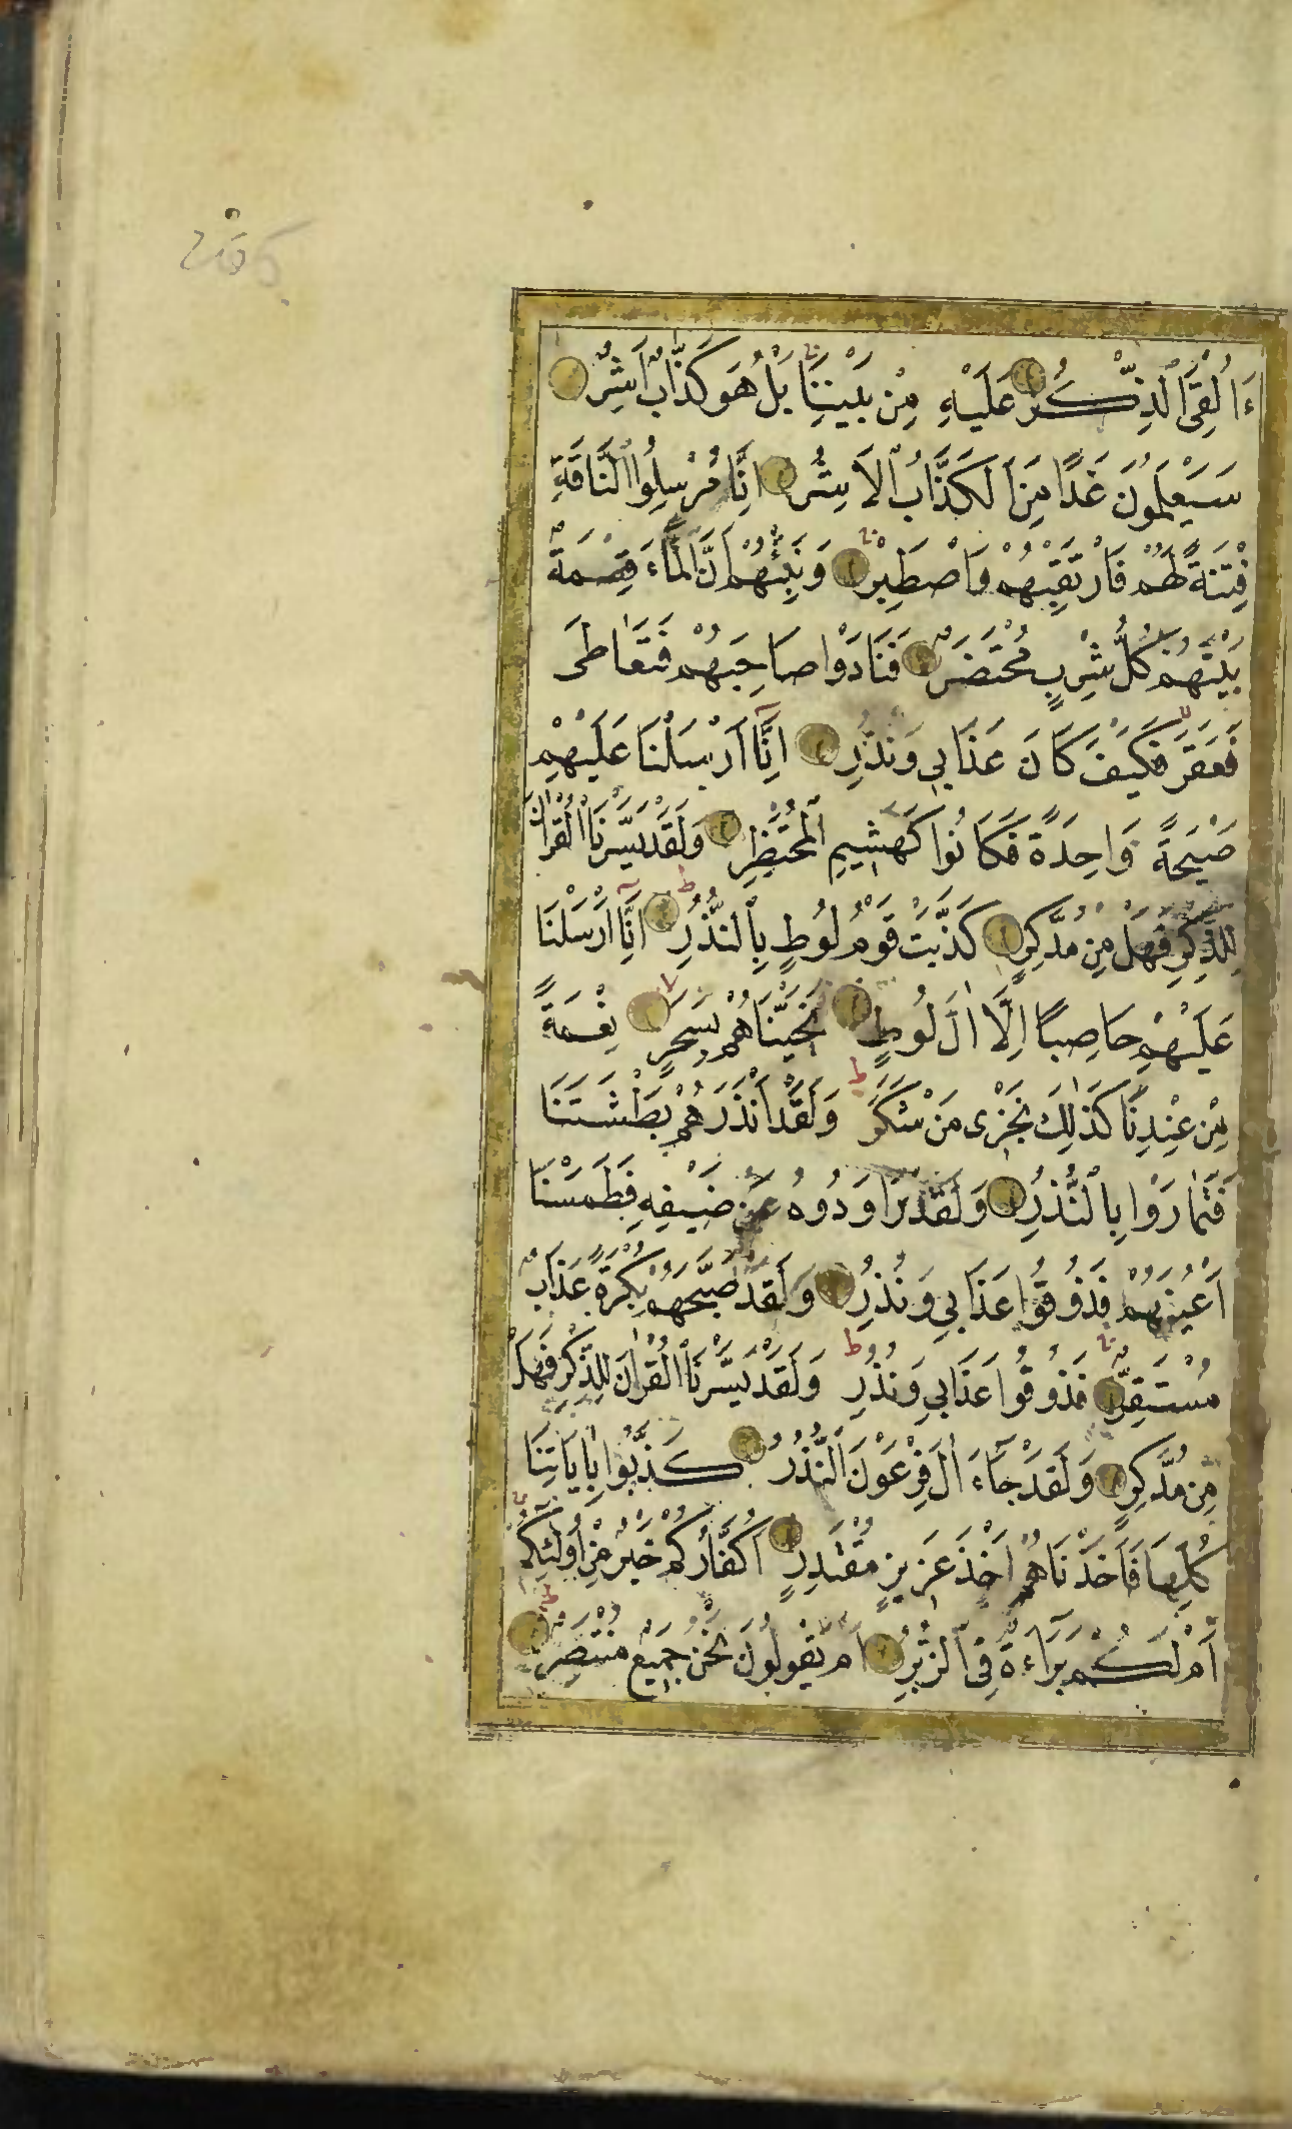 ءَاُلْقِيَ الذِّكْرُ عَلَيْهِ مِنْ بَيْنِنَا بَلْ هُوَ كَذَّابٌ اَشِرٌ
سَيَعْلَمُونَ غَدًا مَنِ الْكَذَّابُ الْاَشِرُ اِنَّا مُرْسِلُوا النَّاقَةِ
فِتْنَةً لَهُمْ فَارْتَقِبْهُمْ وَاصْطَبِرْ وَنَبِّئْهُمْ اَنَّ الْمَاءَ قِسْمَةٌ
بَيْنَهُمْ كُلُّ شِرْبٍ مُحْتَضَرٌ فَنَادَوْا صَاحِبَهُمْ فَتَعَاطَى
فَعَقَرَ فَكَيْفَ كَانَ عَذَابِي وَنُذُرِ اِنَّا اَرْسَلْنَا عَلَيْهِمْ
صَيْحَةً وَاحِدَةً فَكَانُوا كَهَشِيمِ الْمُحْتَظِرِ وَلَقَدْ يَسَّرْنَا الْقُرْاٰنَ
لِلذِّكْرِ فَهَلْ مِنْ مُدَّكِرٍ كَذَّبَتْ قَوْمُ لُوطٍ بِالنُّذُرِ اِنَّا اَرْسَلْنَا
عَلَيْهِمْ حَاصِبًا اِلَّا اٰلَ لُوطٍ نَجَّيْنَاهُمْ بِسَحَرٍ نِعْمَةً
مِنْ عِنْدِنَا كَذٰلِكَ نَجْزِى مَنْ شَكَرَ وَلَقَدْ اَنْذَرَهُمْ بَطْشَتَنَا
فَتَمَارَوْا بِالنُّذُرِ وَلَقَدْ رَاوَدُوهُ عَنْ ضَيْفِهِ فَطَمَسْنَا
اَعْيُنَهُمْ فَذُوقُوا عَذَابِي وَنُذُرِ وَلَقَدْ صَبَّحَهُمْ بُكْرَةً عَذَابٌ
مُسْتَقِرٌّ فَذُوقُوا عَذَابِي وَنُذُرِ وَلَقَدْ يَسَّرْنَا الْقُرْاٰنَ لِلذِّكْرِ فَهَلْ
مِنْ مُدَّكِرٍ وَلَقَدْ جَاءَ اٰلَ فِرْعَوْنَ النُّذُرُ كَذَّبُوا بِاٰيَاتِنَا
كُلِّهَا فَاَخَذْنَاهُمْ اَخْذَ عَزِيزٍ مُقْتَدِرٍ اَكُفَّارُكُمْ خَيْرٌ مِنْ اُولٰئِكُمْ
اَمْ لَكُمْ بَرَاءَةٌ فِي الزُّبُرِ اَمْ يَقُولُونَ نَحْنُ جَمِيعٌ مُنْتَصِرٌ